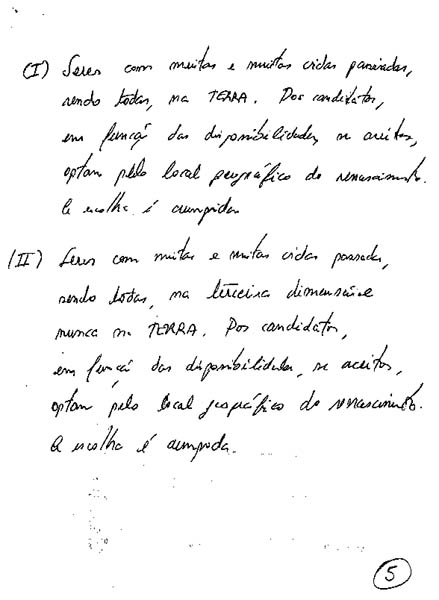 (I) Seres com muitas e muitas vidas passadas,
sendo todas, na TERRA. Dos candidatos,
em função das disponibilidades, se aceitos,
optam pelo local geográfico do renascimento.
A escolha é cumprida.
(II) Seres com muitas e muitas vidas passadas,
sendo todas, na terceira dimensão e
nunca na TERRA. Dos candidatos,
em função das disponibilidades, se aceitos,
optam pelo local geográfico do renascimento.
A escolha é cumprida.
5